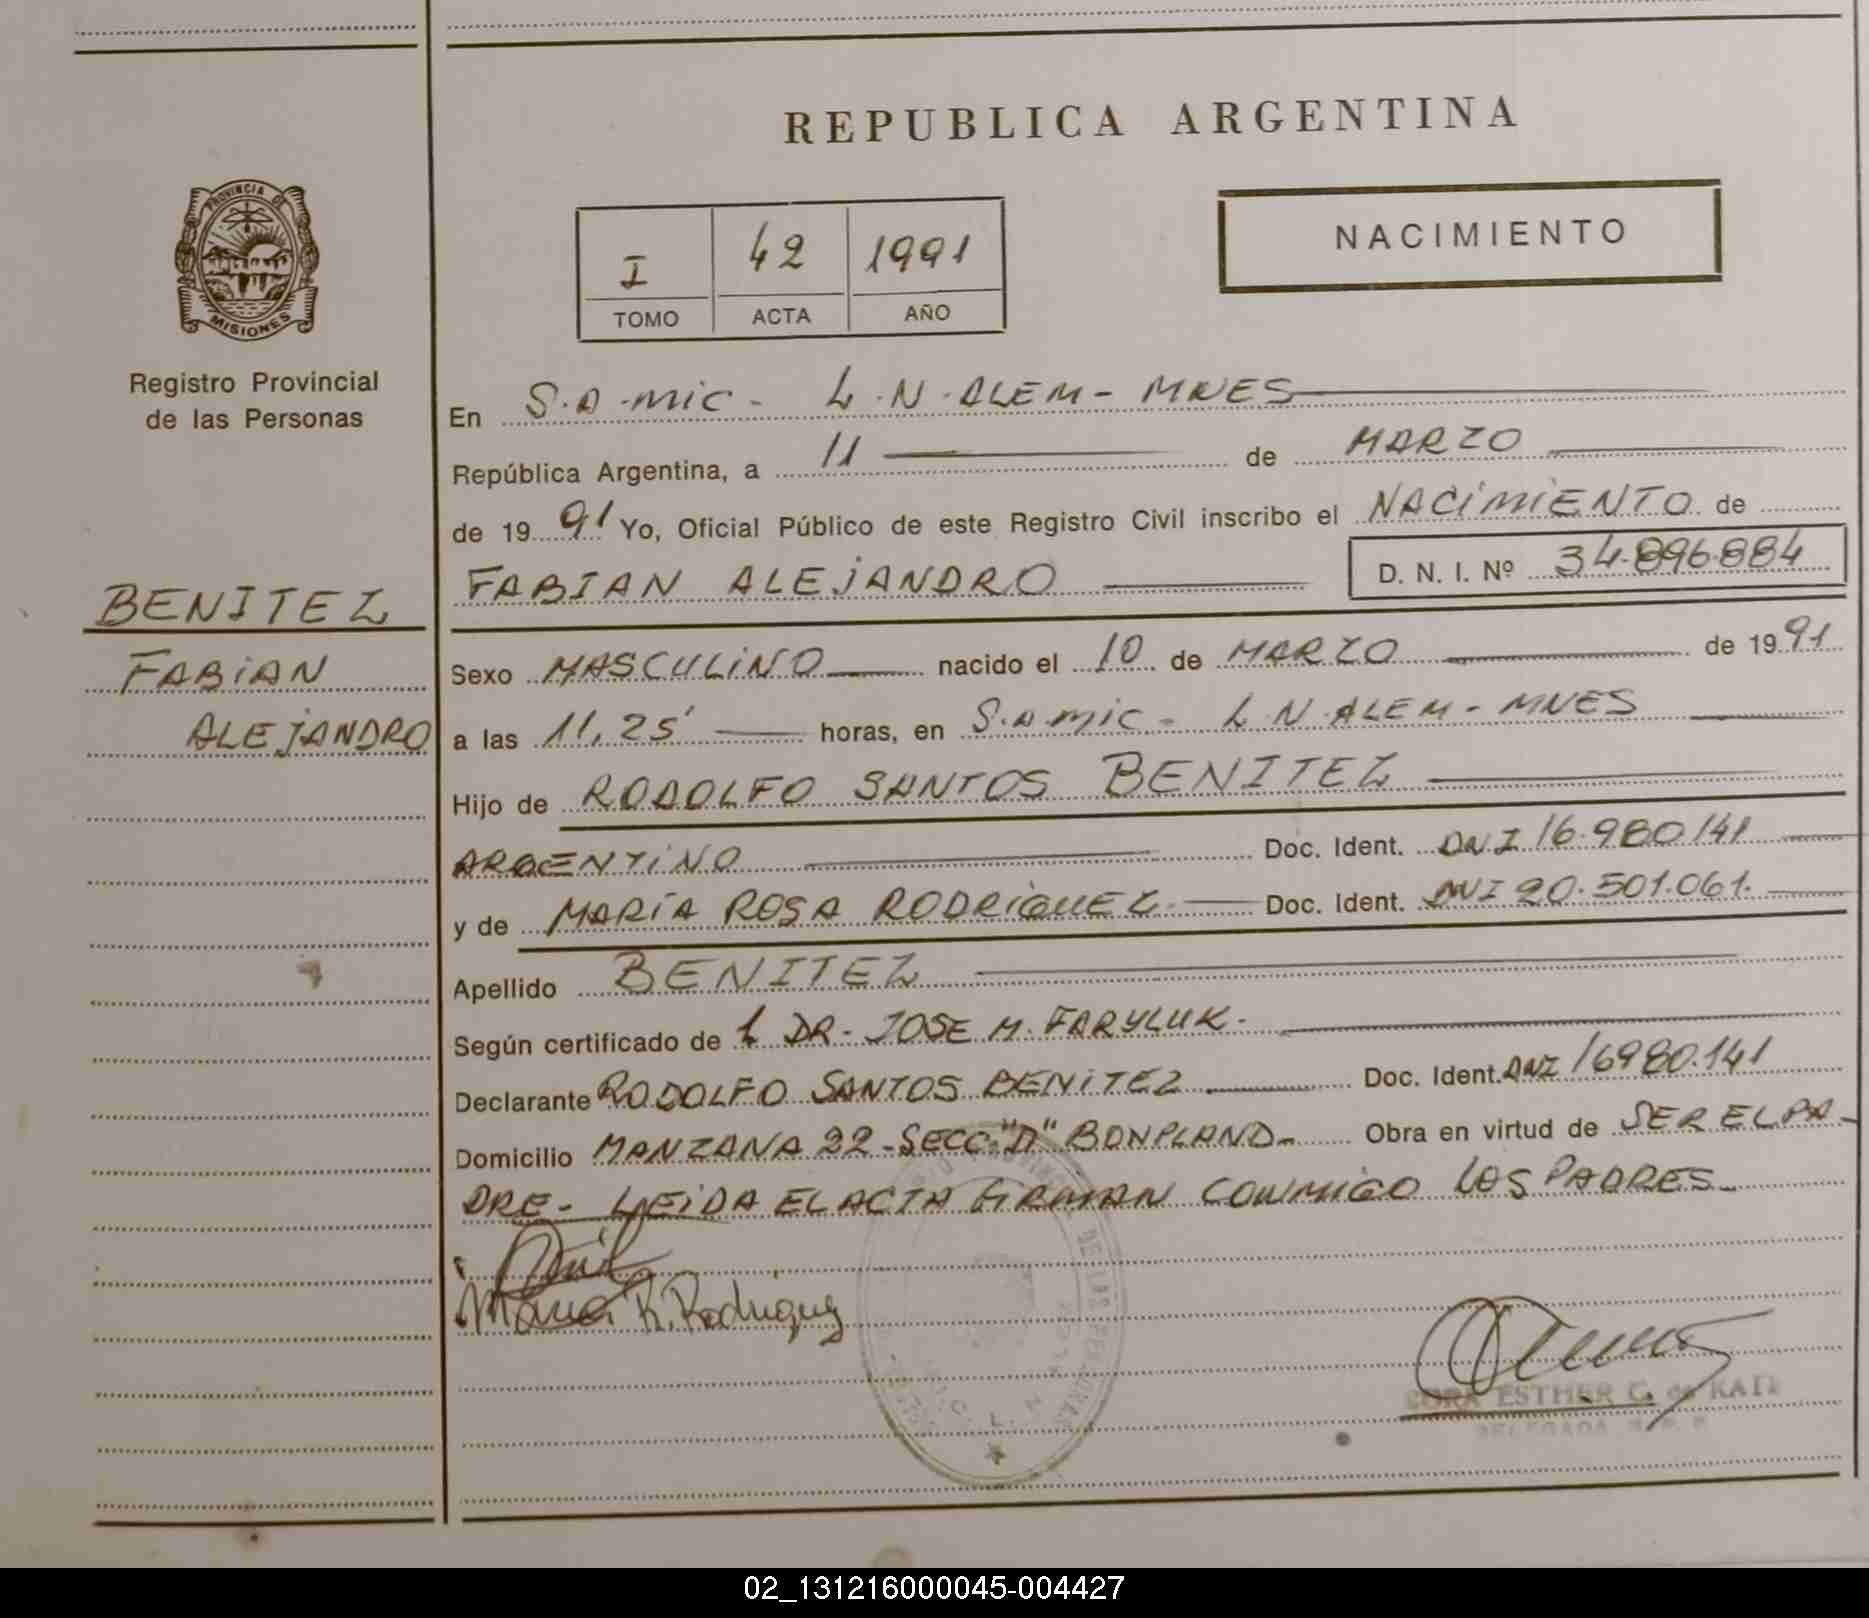 REPUBLICA ARGENTINA
PROVINCIA DE
MISIONES
Registro Provincial
de las Personas
I 42 1991
TOMO ACTA AÑO
NACIMIENTO
En S.A.MIC - L.N.ALEM - MNES
República Argentina, a 11 de MARZO
de 1991 Yo, Oficial Público de este Registro Civil inscribo el NACIMIENTO de
FABIAN ALEJANDRO D. N. I. Nº 34.896.884
BENITEZ
FABIAN
ALEJANDRO
Sexo MASCULINO nacido el 10 de MARZO de 1991
a las 11,25' horas, en S.A.MIC - L.N.ALEM - MNES
Hijo de RODOLFO SANTOS BENITEZ
ARGENTINO Doc. Ident. DNI 16.980.141
y de MARIA ROSA RODRIGUEZ Doc. Ident. DNI 20.501.061.
Apellido BENITEZ
Según certificado de L DR. JOSE M. FARYLUK.
Declarante RODOLFO SANTOS BENITEZ Doc. Ident. DNI 16980.141
Domicilio MANZANA 22 - SECC. "D" BONPLAND - Obra en virtud de SER EL PA-
DRE - LEIDA EL ACTA FIRMAN CONMIGO LOS PADRES -
Maria R. Rodriguez
ESTHER C. de
DELEGADA
02_131216000045-004427